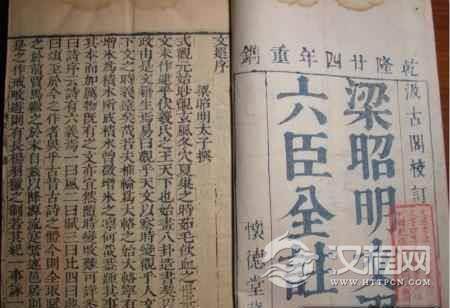 乾隆廿四年重鐫
汲古閣校訂
梁昭明文
六臣全註
懷德堂
文選序
梁昭明太子撰
式觀元始眇覿玄風冬穴夏巢之時茹毛飲血之世世質民淳斯
文未作逮乎伏羲氏之王天下也始畫八卦造書契以代結繩之
政由是文籍生焉易曰觀乎天文以察時變觀乎人文以化成天
下文之時義遠矣哉若夫椎輪為大輅之始大輅寧有椎輪之質
增冰為積水所成積水曾微增冰之凜何哉蓋踵其事而增華變
其本而加厲物既有之文亦宜然隨時變改難可詳悉嘗試論之
曰詩序云詩有六義焉一曰風二曰賦三曰比四曰興五曰雅六
曰頌至於今之作者異乎古昔古詩之體今則全取賦名荀宋表
之於前賈馬繼之於末自茲以降源流寔繁述邑居則有憑虛亡是
之作戒畋遊則有長楊羽獵之制若其紀一事詠一
汉程网
WWW.HTTPCN.COM